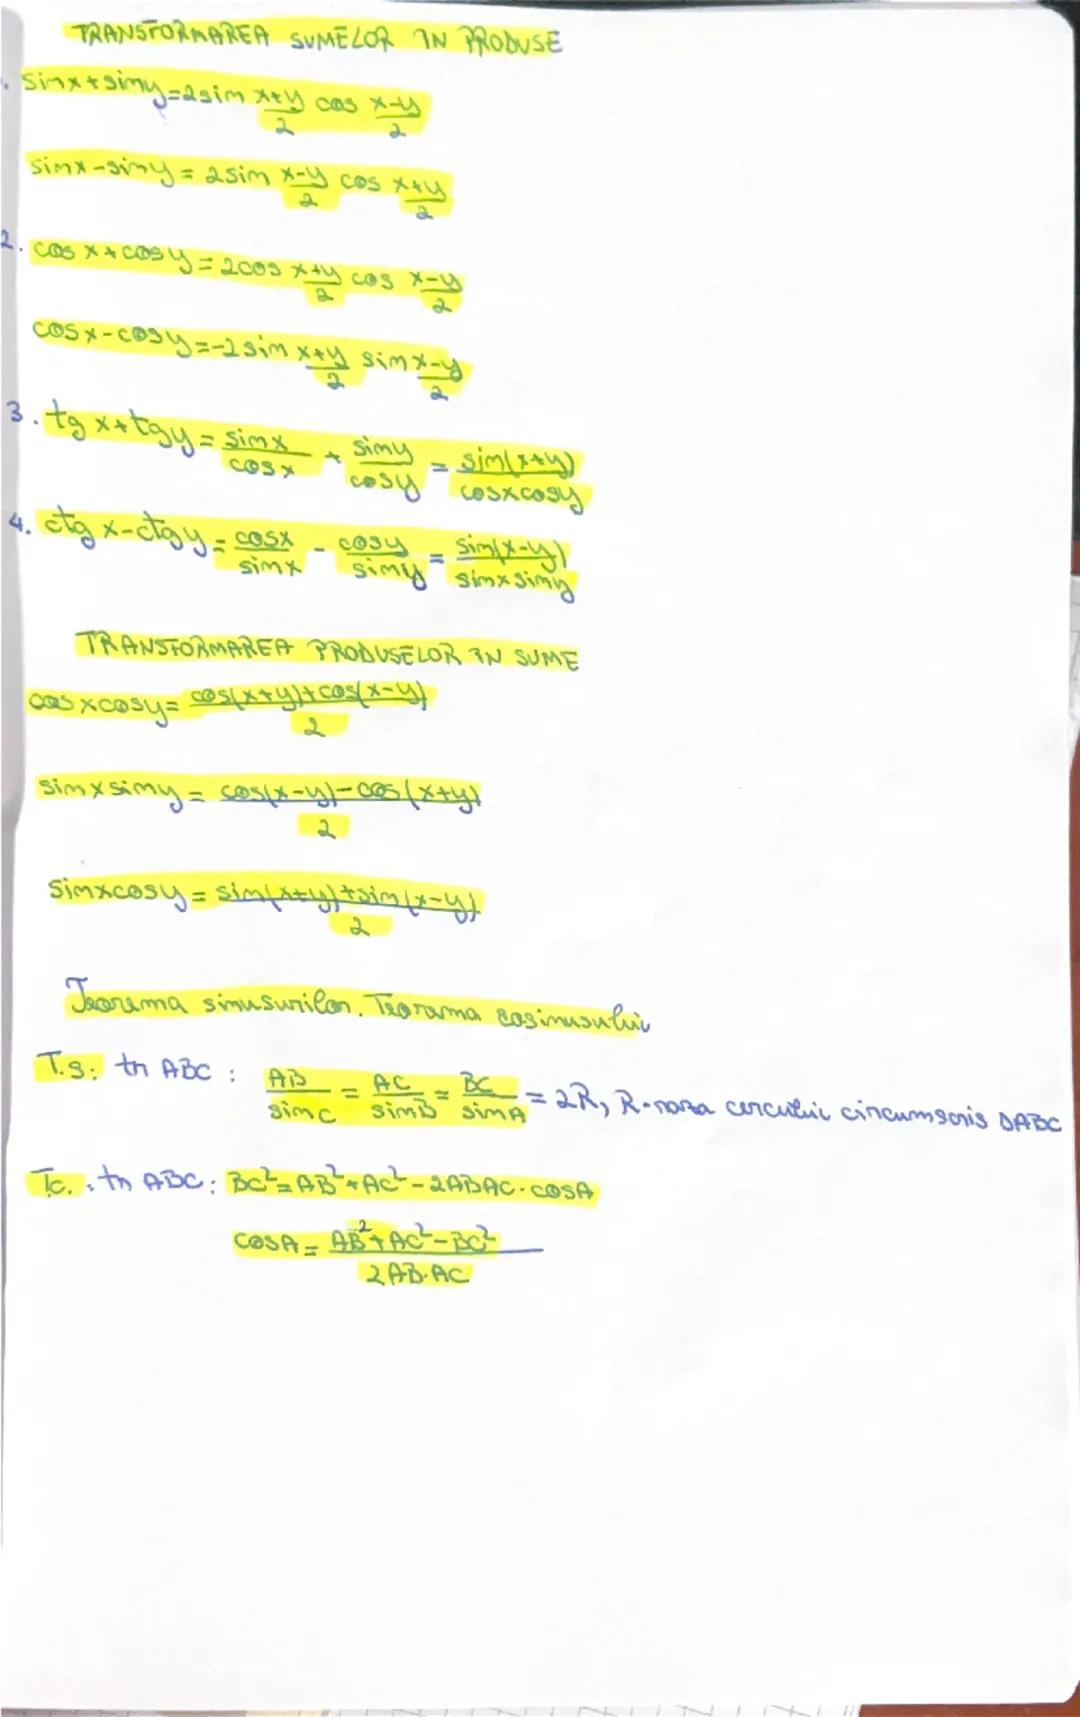 TRANSFORMAREA SUMELOR IN PRODUSE
. sinx+siny=2sin x+y/2 cos x-y/2
sinx-siny = 2sin x-y/2 cos x+y/2
2. cos x+cosy=2cos x+y/2 cos x-y/2
cosx-cosy=-2sin x+y/2 sin x-y/2
3. tg x+tgy = sinx/cosx + siny/cosy = sin(x+y)/cosxcosy
4. ctg x-ctgy = cosx/sinx - cosy/siny = sin(x-y)/sinxsiny
TRANSFORMAREA PRODUSELOR IN SUME
cosxcosy= cos(x+y)+cos(x-y)/2
sinxsiny = cos(x-y)-cos(x+y)/2
sinxcosy = sin(x+y)+sin(x-y)/2
Teorema sinusurilor. Teorema cosinusului
T.s: în ABC : AB/sinC = AC/sinB = BC/sinA = 2R, R-raza cercului circumscris ΔABC
Tc. : în ABC: BC²=AB²+AC²-2ABAC·cosA
cosA = AB²+AC²-BC²/2AB·AC